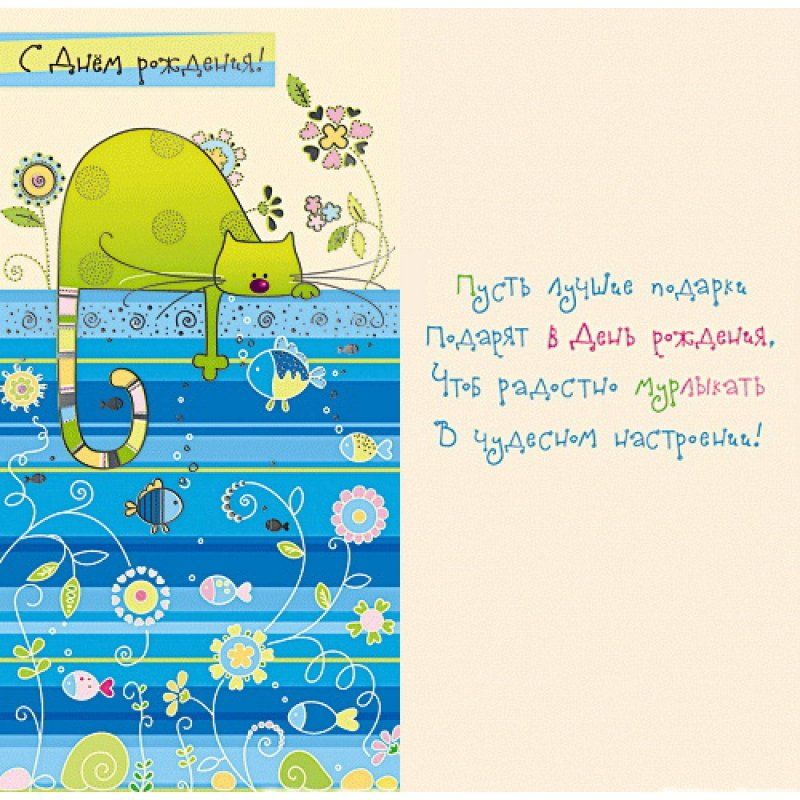 С Днём рождения!
Пусть лучшие подарки
Подарят в День рождения,
Чтоб радостно мурлыкать
В чудесном настроении!